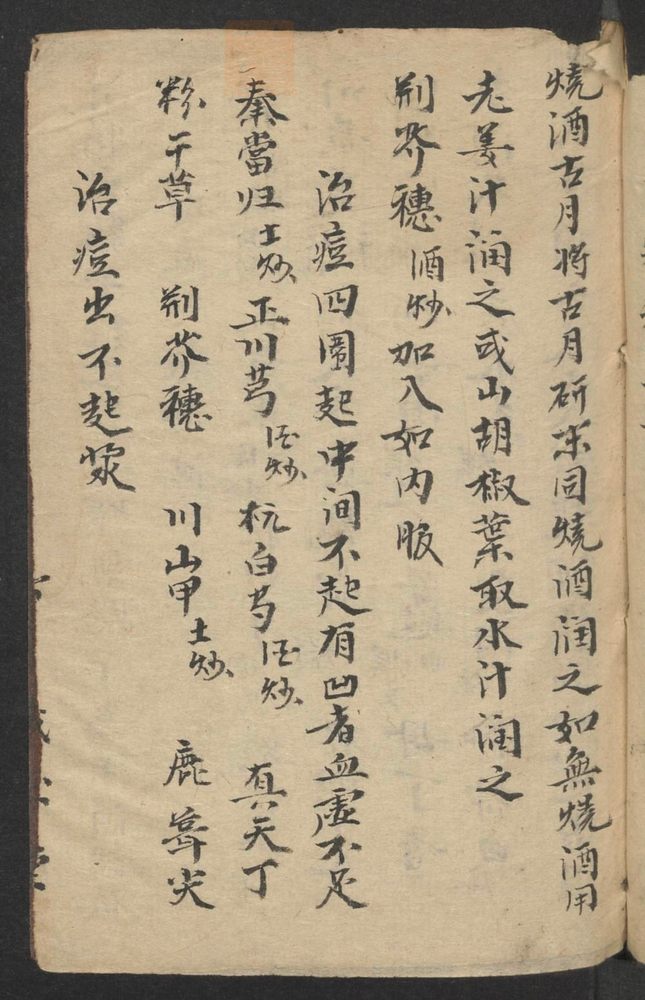 燒酒古月将古月研末同燒酒润之如無燒酒用
老姜汁润之或山胡椒葉取水汁润之
荆芥穗酒炒加入如内服
治痘四圍起中间不起有凹者血虚不足
秦當归土炒 正川芎酒炒 杭白芍酒炒 真天丁
粉干草 荆芥穗 川山甲土炒 鹿茸尖
治痘出不起浆